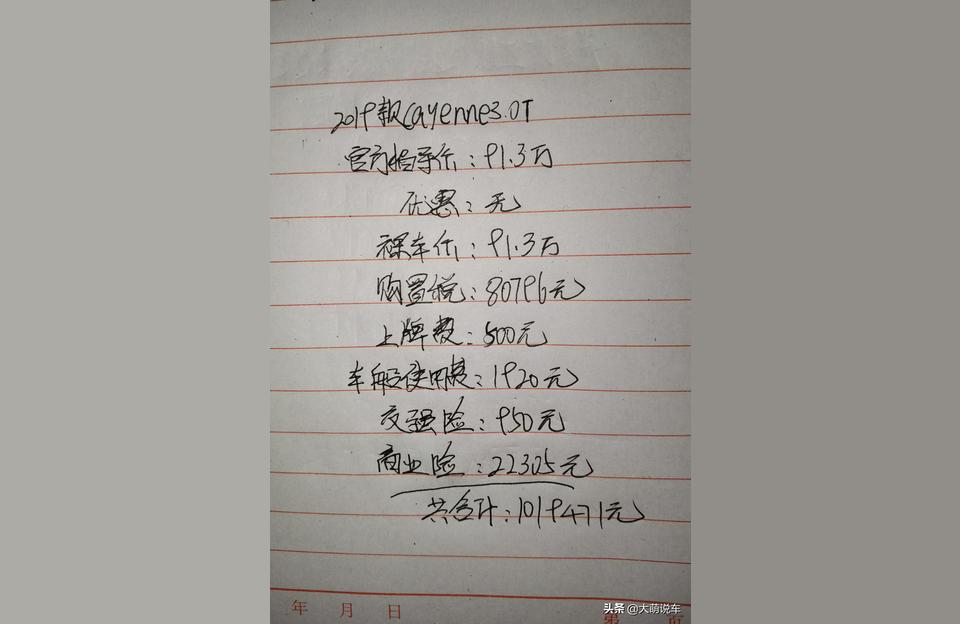 2019款Cayenne3.0T
官方指导价：91.3万
优惠：无
裸车价：91.3万
购置税：80796元
上牌费：500元
车船使用费：1920元
交强险：950元
商业险：22305元
共合计：1019471元
年 月 日
第 页
头条 @大萌说车